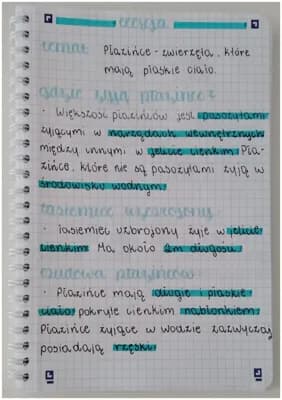 lekcja
temat Płazińce - zwierzęta, które
mają płaskie ciało.
gdzie żyją płazińce?
· Większość płazińców jest pasożytami
żyjącymi w narządach wewnętrznych
między innymi w jelicie cienkim. Pła-
zińce, które nie są pasożytami żyją w
środowisku wodnym.
tasiemiec uzbrojony
· Tasiemiec uzbrojony żyje w jelicie
cienkim. Ma około 2m długości.
budowa płazińców
· Płazińce mają długie płaskie
ciało pokryte cienkim nabłonkiem.
Płazińce żyjące w wodzie zazwyczaj
posiadają rzęski.